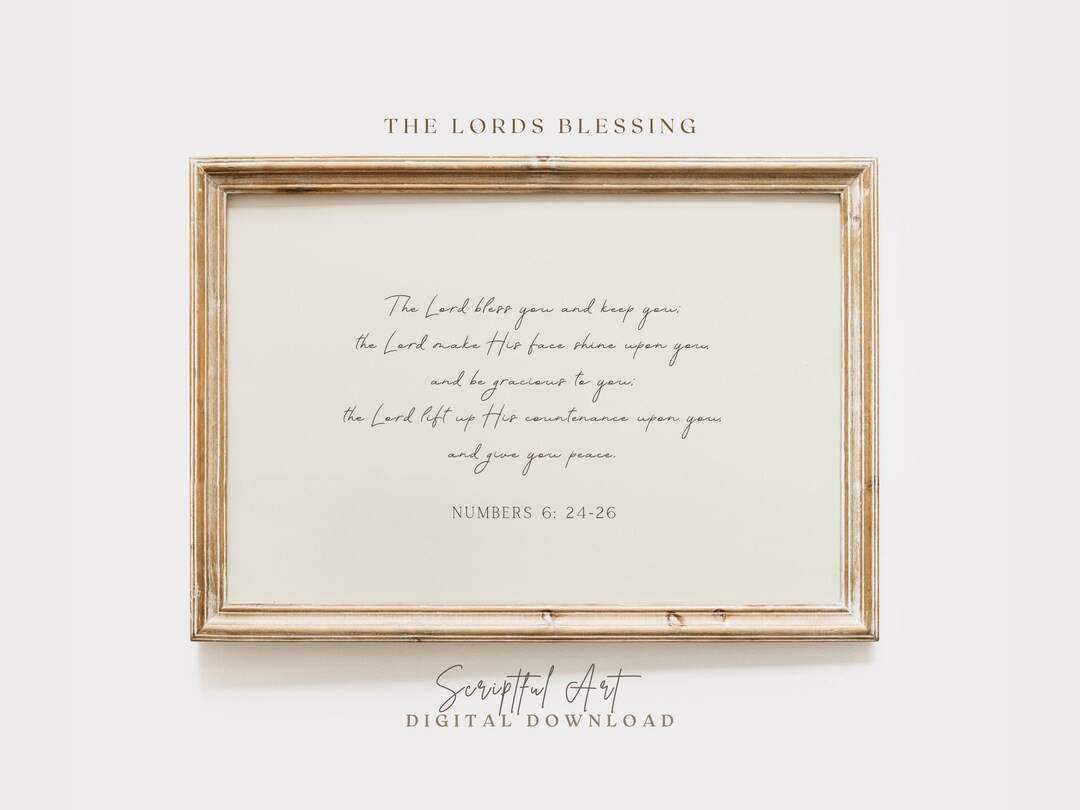 THE LORDS BLESSING
The Lord bless you and keep you;
the Lord make His face shine upon you,
and be gracious to you;
the Lord lift up His countenance upon you,
and give you peace.
NUMBERS 6: 24-26
Scriptful Art
DIGITAL DOWNLOAD